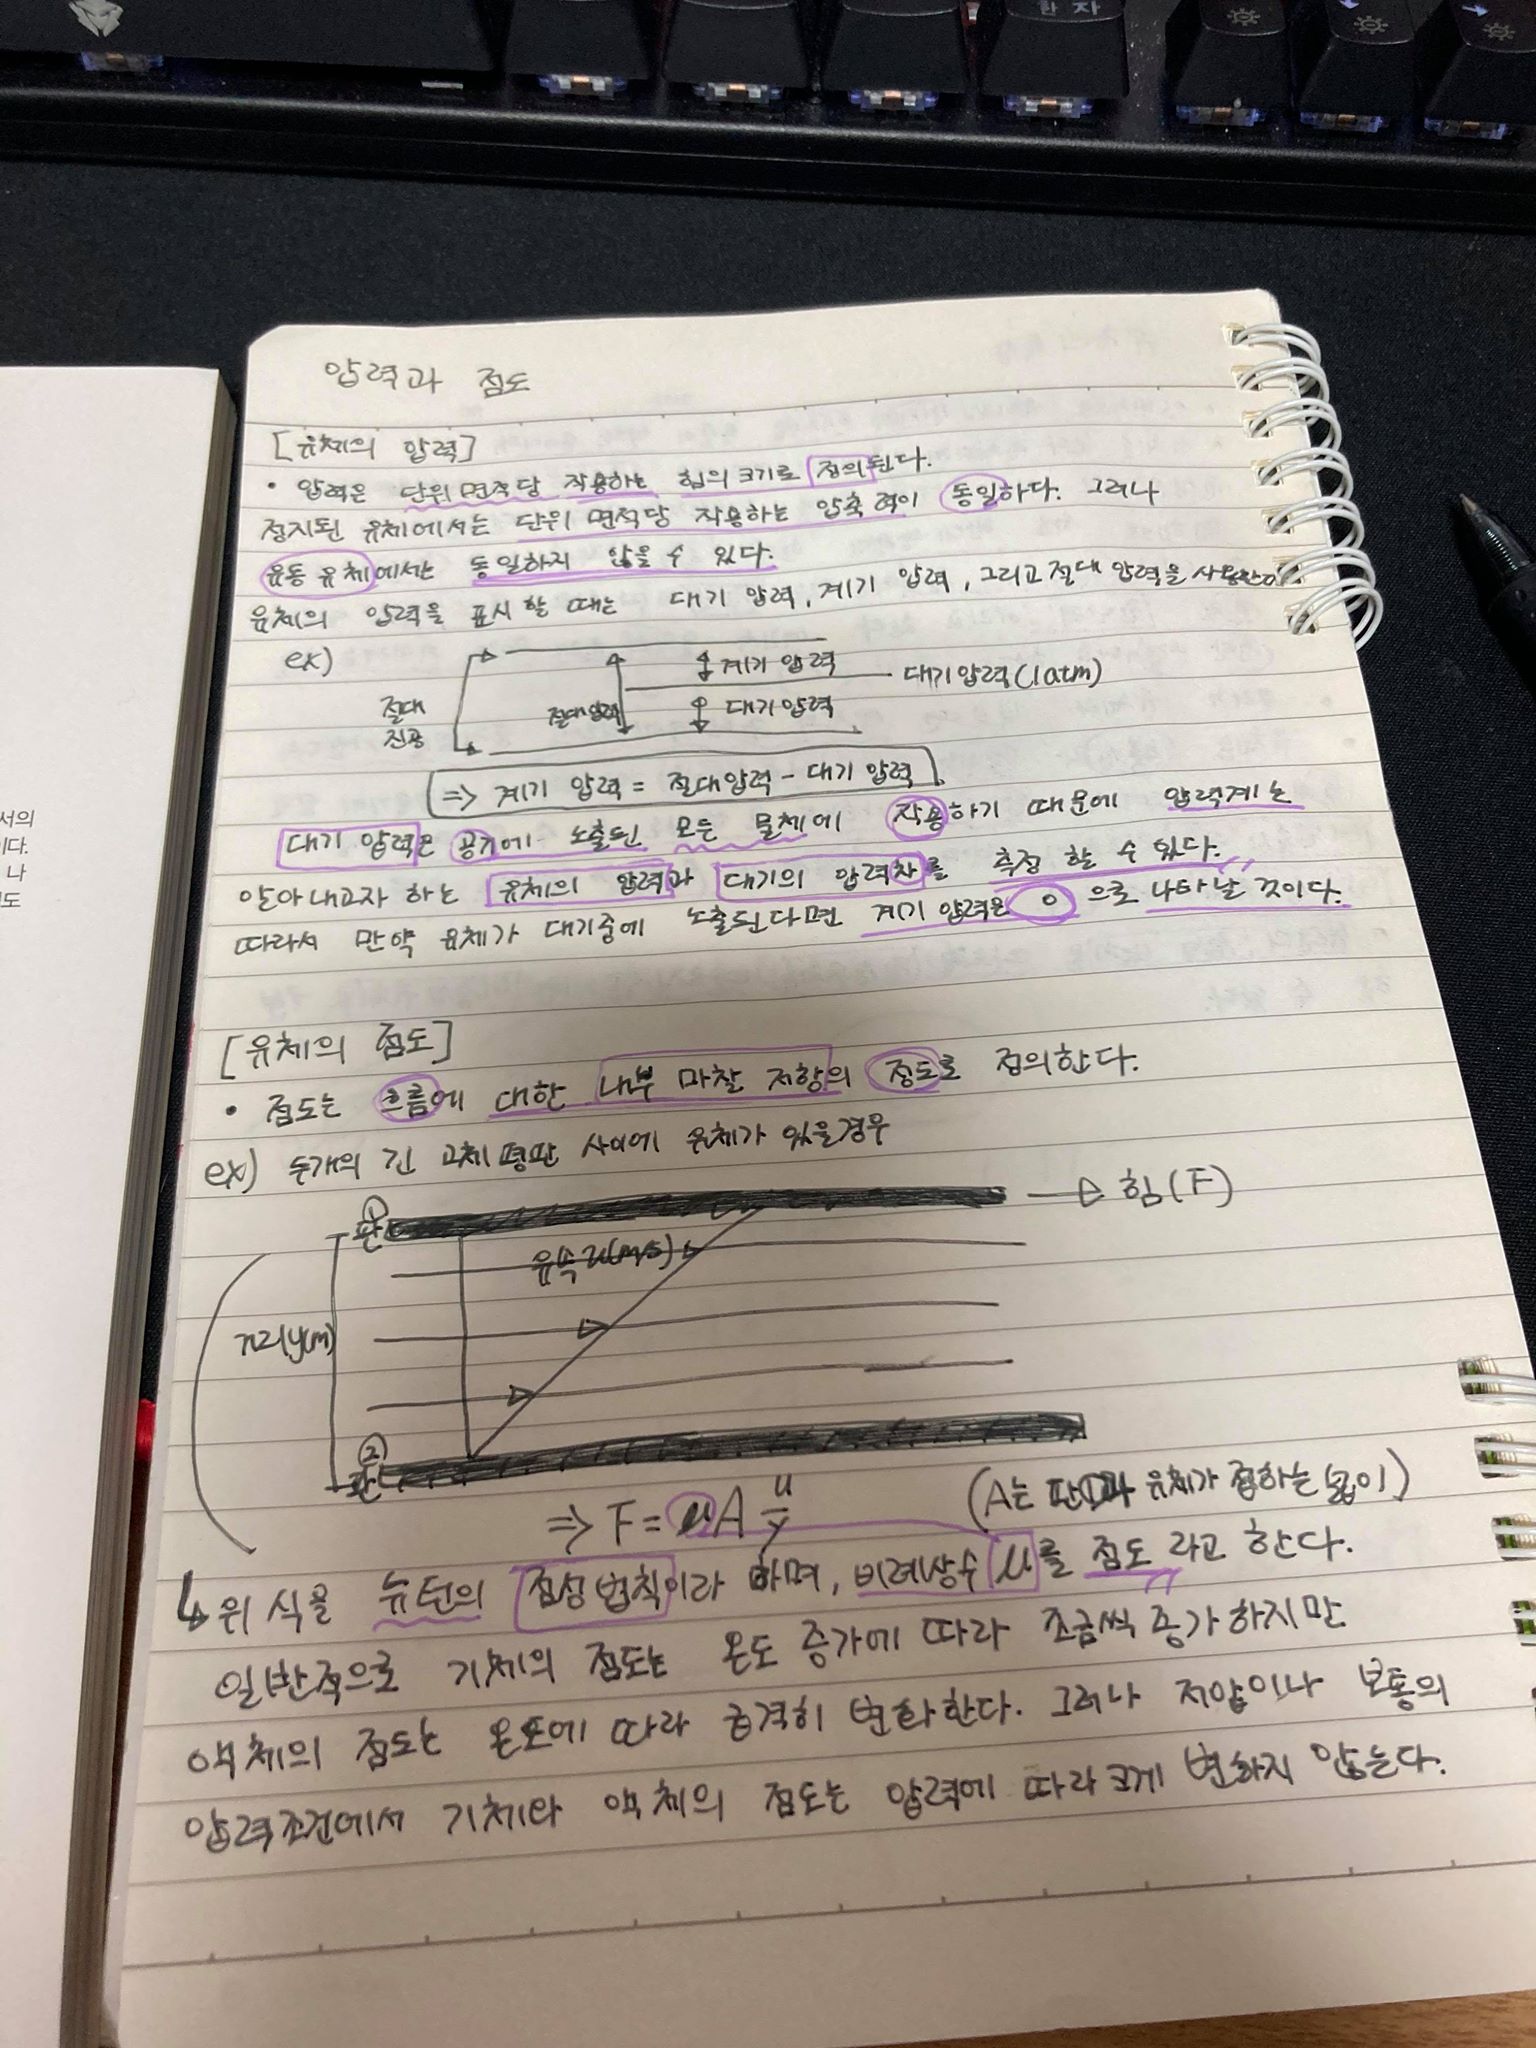 한자
서의
이다.
나
도
압력과 점도
[유체의 압력]
• 압력은 단위면적당 작용하는 힘의 크기로 정의된다.
정지된 유체에서는 단위 면적당 작용하는 압축력이 동일하다. 그러나
유동 유체에서는 동일하지 않을 수 있다.
유체의 압력을 표시할 때는 대기 압력, 계기 압력, 그리고 절대 압력을 사용한다
ex)
계기 압력
대기압력(1atm)
절대 진공
절대압력
대기압력
⇒ 계기 압력 = 절대압력 - 대기 압력
대기 압력은 공기에 노출된 모든 물체에 작용하기 때문에 압력계는
알아내고자 하는 유체의 압력과 대기의 압력차를 측정 할 수 있다.
따라서 만약 유체가 대기중에 노출된다면 계기 압력은 0 으로 나타날 것이다.
[유체의 점도]
• 점도는 흐름에 대한 내부 마찰 저항의 정도로 정의한다.
ex) 두개의 긴 고체 평판 사이에 유체가 있을경우
판①
힘(F)
유속 u(m/s)
거리y(m)
판②
⇒ F = μA u/y
(A는 판①과 유체가 접하는 넓이)
↳ 위 식을 뉴턴의 점성법칙이라 하며, 비례상수 μ를 점도 라고 한다.
일반적으로 기체의 점도는 온도 증가에 따라 조금씩 증가하지만
액체의 점도는 온도에 따라 급격히 변화한다. 그러나 저압이나 보통의
압력조건에서 기체와 액체의 점도는 압력에 따라 크게 변하지 않는다.